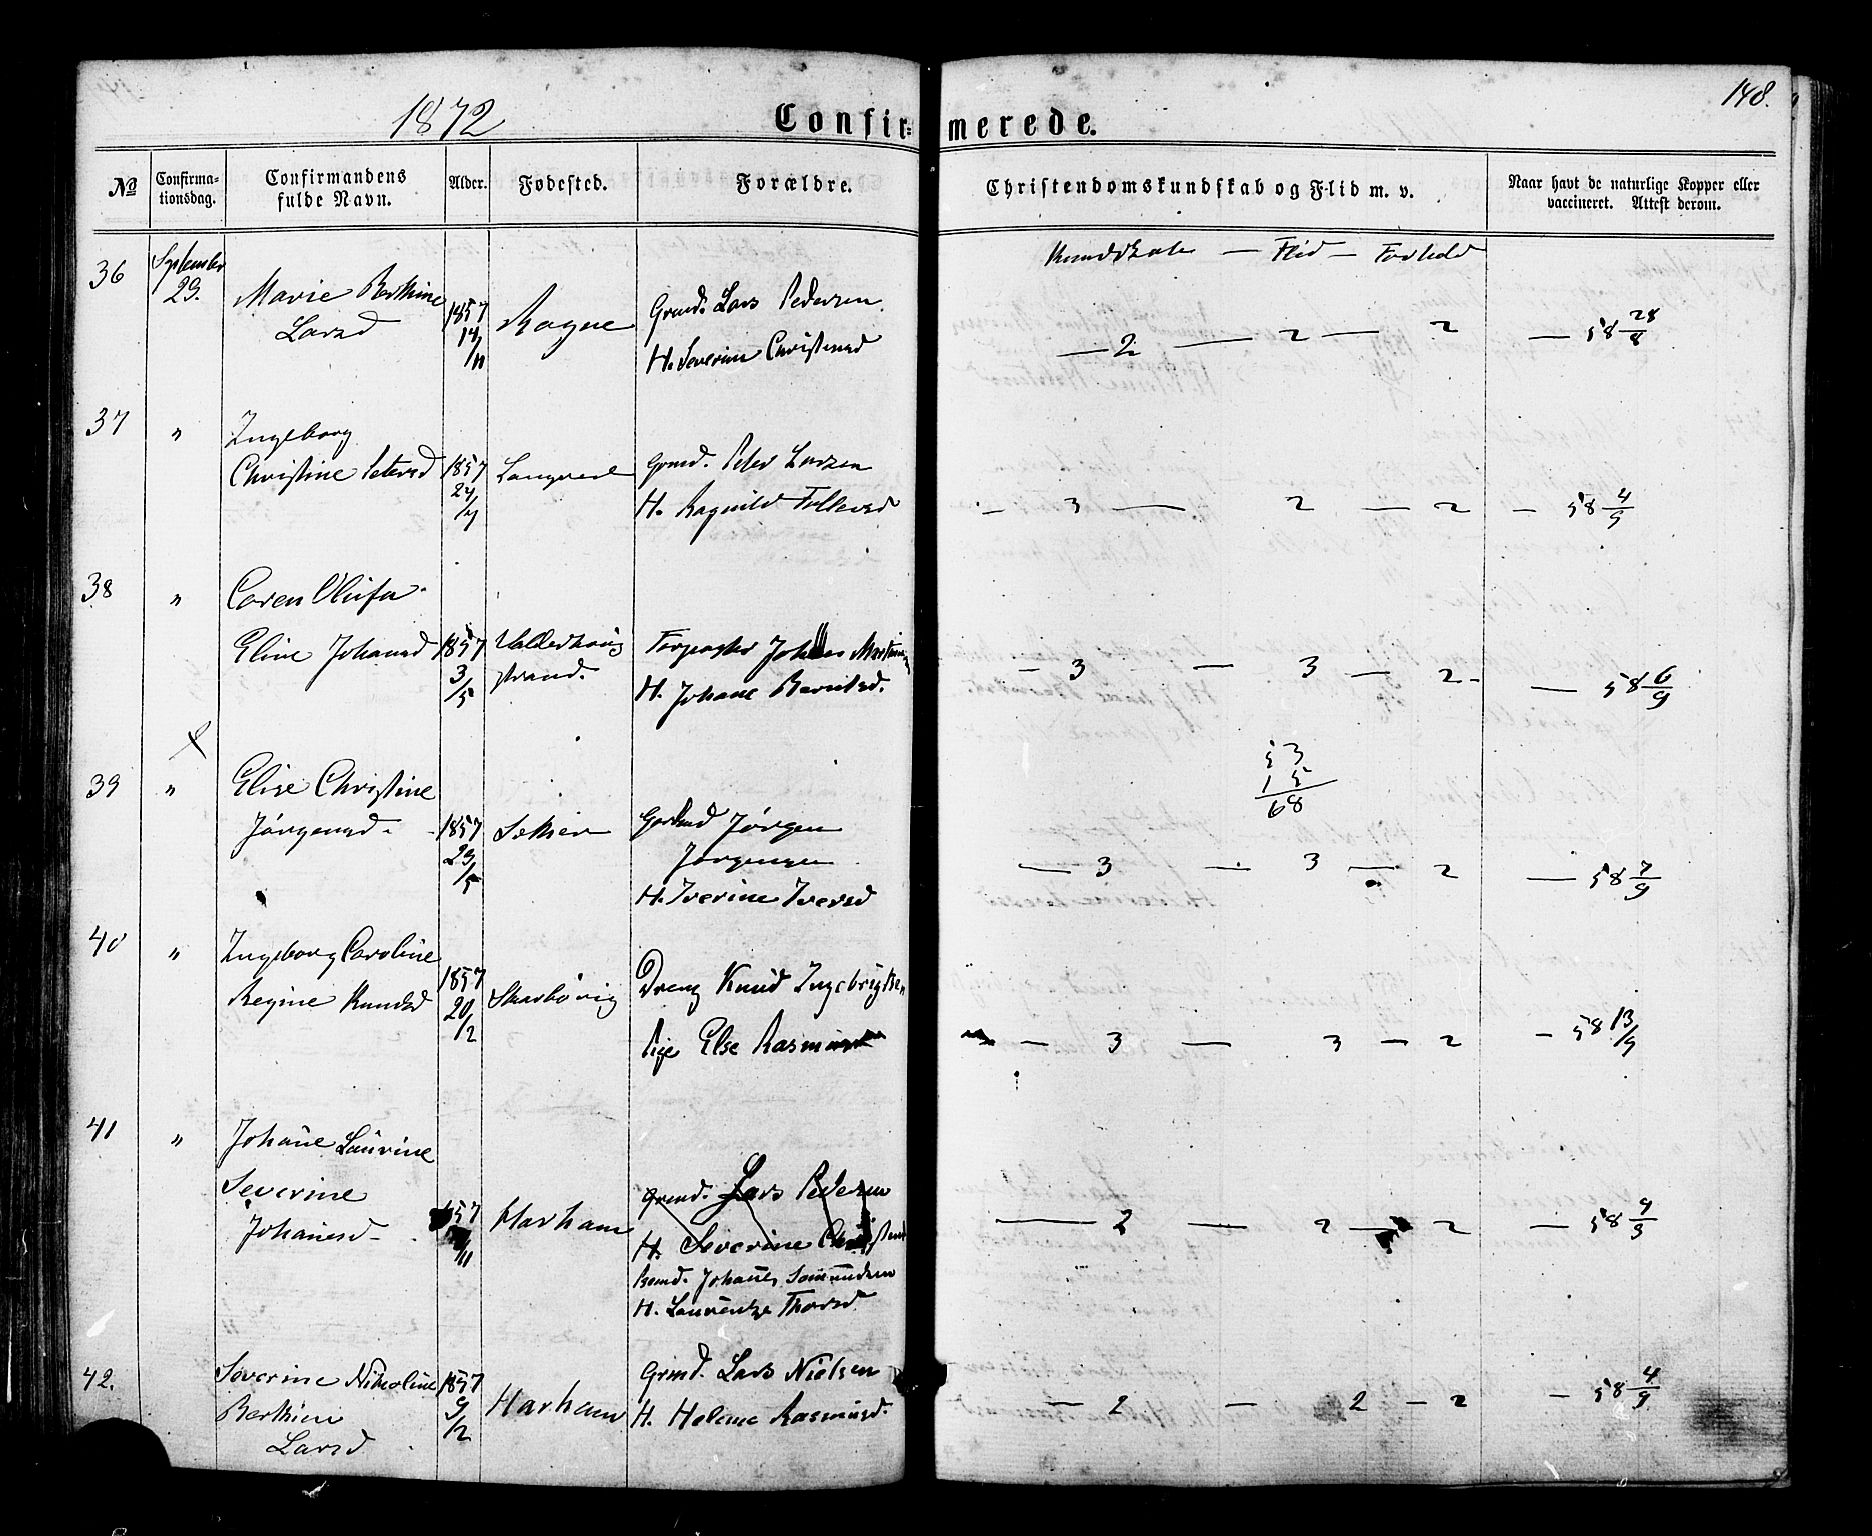 148.
1872 Confir= merede.
No Confirma-tionsdag. Confirmandens fulde Navn. Alder. Fødested. Forældre. Christendomskundskab og Flid m. v. Naar havt de naturlige Kopper eller vaccineret. Attest derom.
Kundskab — Flid — Forhold
36 September 29. Marie Berthine Larsd 1857 14/11 Rogne Grmd. Lars Pedersen
H. Severine Christensd — 2 — 2 — 2 — 58 28/8
37 " Ingeborg
Christine Petersd 1857 24/7 Longved Grmd. Peder Larsen
H. Ragnild Tollevsd — 3 — 2 — 2 — 58 4/9
38 " Caren Olufa
Eline Johansd 1857 3/5 Valderhoug strand. Forpagter Johan Martin
H. Johane Berntsd. — 3 — 3 — 2 — 58 6/9
53
15
68
39 " Elise Christine
Jørgensd. 1857 23/5 Gaardmd Jørgen
Jørgensen
H. Iverine Iversd — 3 — 3 — 2 — 58 7/9
40 " Ingeborg Caroline
Regine Knudsd 1857 20/2 Skarbøvig Dreng Knud Ingebrigtsen
Pige Else Rasmusd — 3 — 3 — 2 — 58 13/9
41 " Johane Laurine
Severine
Johanesd 1857 /11 Harham Grmd. Lars Pedersen
H. Severine Christensd
Johanes
H. Laurentze Thorsd — 2 — 2 — 2 — 58
42. Severine Nikoline
Berthine
Larsd 1857 9/2 Harham Grmd. Lars Nielsen
H. Helene Rasmusd. — 2 — 2 — 2 — 58 4/9